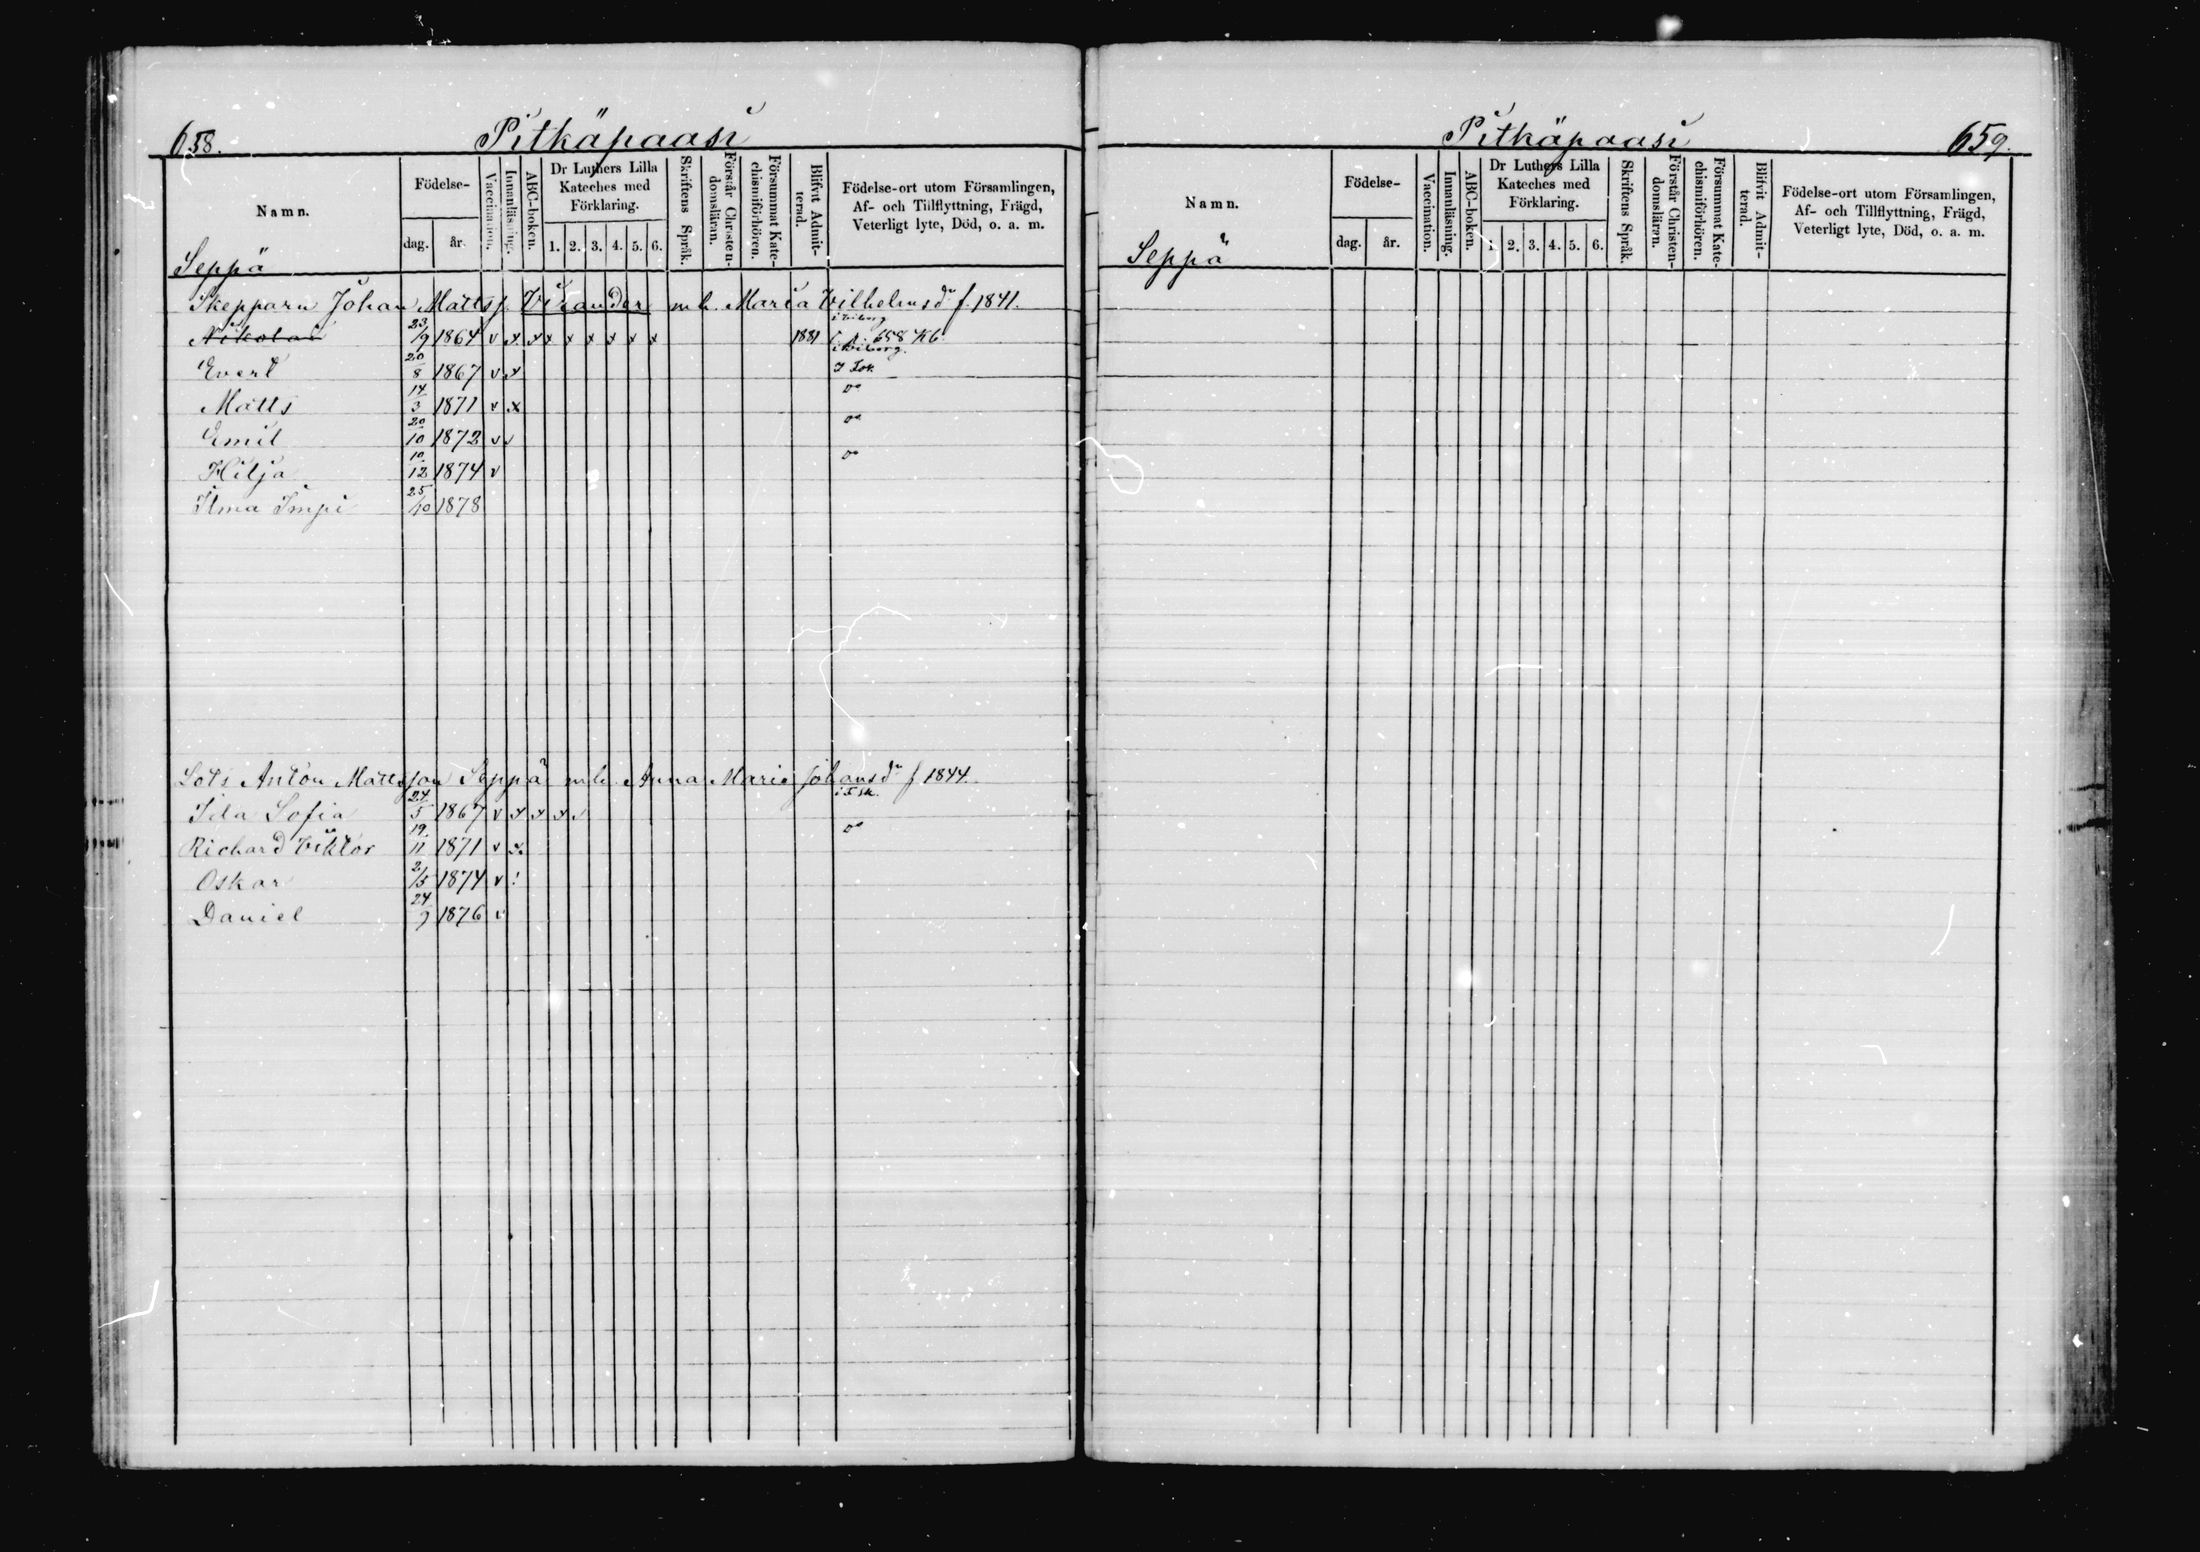 658. Pitkäpaasi
Namn. Födelse- dag. år. Vaccination. Innanläsning. ABC-boken. Dr Luthers Lilla Kateches med Förklaring. 1. 2. 3. 4. 5. 6. Skriftens Språk. Förstår Christendomsläran. Försummat Katechismiförhören. Blifvit Admitterad. Födelse-ort utom Församlingen, Af- och Tillflyttning, Frägd, Veterligt lyte, Död, o. a. m.
Seppä
Skepparn Johan Mattss. Virander m.h. Maria Vilhelmsdr f. 1841.
i Viborg
Nikolai 23/9 1864 v x x x x x x x x 1881 658 Kb
i Viborg.
Evert 20/8 1867 v x
Matts 14/3 1871 v x do
Emil 20/10 1872 v v do
Hilja 10/12 1874 v do
Ilma Impi 25/10 1878
Lots Anton Mattsson Seppä m.h. Anna Maria Johansdr f 1844.
Ida Sofia 24/5 1867 v x x x v
Richard Viktor 19/11 1871 v x. do
Oskar 2/5 1874 v !
Daniel 24/9 1876 v
Pitkäpaasi 659.
Namn. Födelse- dag. år. Vaccination. Innanläsning. ABC-boken. Dr Luthers Lilla Kateches med Förklaring. 1. 2. 3. 4. 5. 6. Skriftens Språk. Förstår Christendomsläran. Försummat Katechismiförhören. Blifvit Admitterad. Födelse-ort utom Församlingen, Af- och Tillflyttning, Frägd, Veterligt lyte, Död, o. a. m.
Seppä